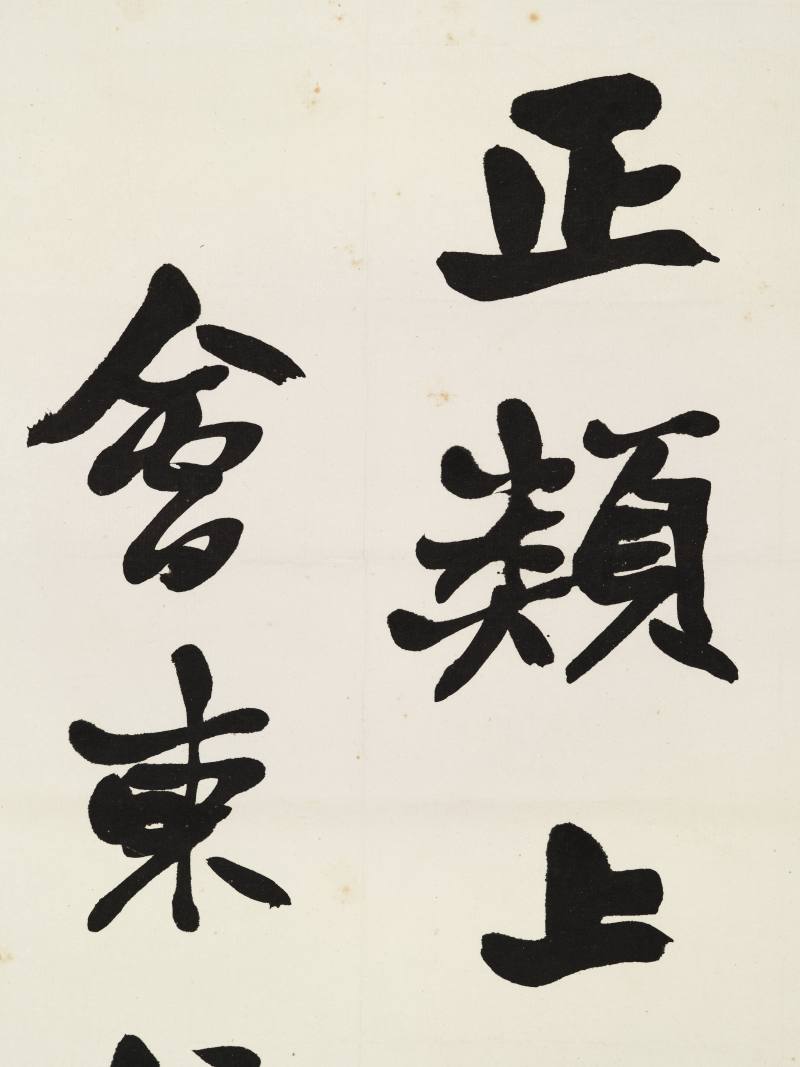 正類上
會東